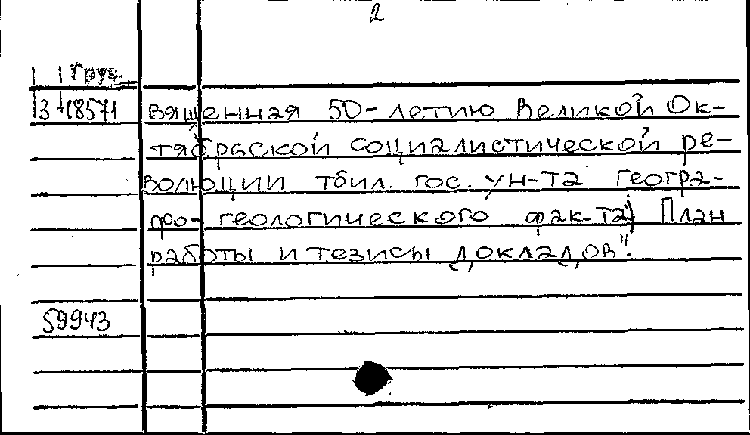 2
Груз.
3+18571 вященная 50-летию Великой Ок-
тябрьской социалистической ре-
волюции тбил. гос. ун-та геогра-
фо-геологического фак-та) План
работы и тезисы докладов".
59943